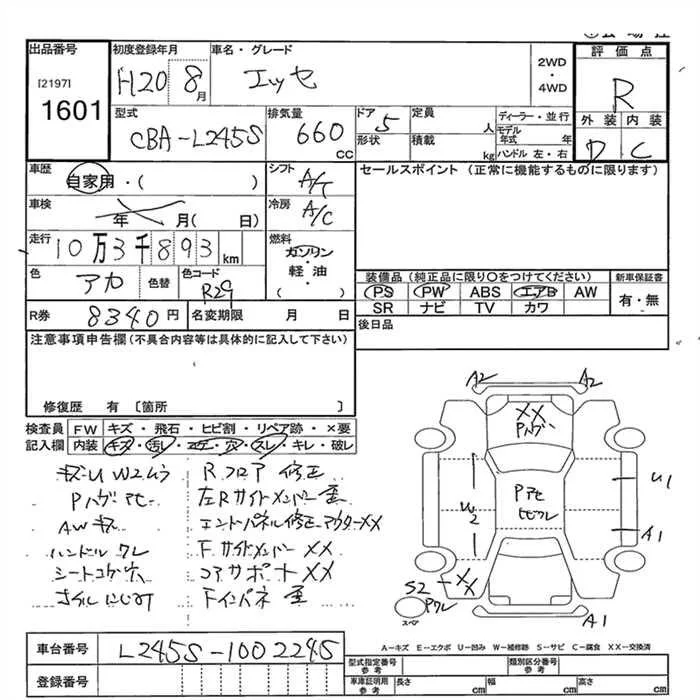 出品番号 初度登録年月 車名・グレード 2WD・4WD 評価点
[2197]
1601
H20 8月 エッセ R
型式 排気量 ドア 定員 ディーラー・並行
CBA-L245S 660 CC 5 人 モデル年式 年
形状 積載 kg ハンドル 左・右
外装 内装
D C
車歴 自家用・( ) シフト A/T
セールスポイント (正常に機能するものに限ります)
車検 年 月( 日) 冷房 A/C
走行 10万3千893km 燃料 ガソリン・軽油 ( )
色 アカ 色替 色コード R29
装備品(純正品に限り○をつけてください) 新車保証書
PS PW ABS エアB AW 有・無
SR ナビ TV カワ
R券 8340円 名変期限 月 日
後日品
注意事項申告欄(不具合内容等は具体的に記入して下さい)
修復歴 有 〔箇所 〕
検査員 FW キズ・飛石・ヒビ割・リペア跡・×要
記入欄 内装 キズ・汚レ・コゲ・穴・スレ・キレ・破レ
キズU W2ムラ Rフロア 修正
Pハゲ アセ 左Rサイドメンバー 歪
AWキズ エンドパネル修正アウターXX
ハンドル スレ F.サイドメンバー XX
シートコゲ穴 コアサポートXX
Fインパネ 歪
A2 A2
XX
Pハゲ
W2
Pアセ
ヒビワレ
U1
A1
S2 XX
Pワレ
スペア
A1
車台番号 L245S-1002245
登録番号
A-キズ E-エクボ U-凹み W-補修跡 S-サビ C-腐食 XX-交換済
型式指定番号 参考 類別区分番号 参考
車庫証明用 参考 長さ cm 幅 cm 高さ cm